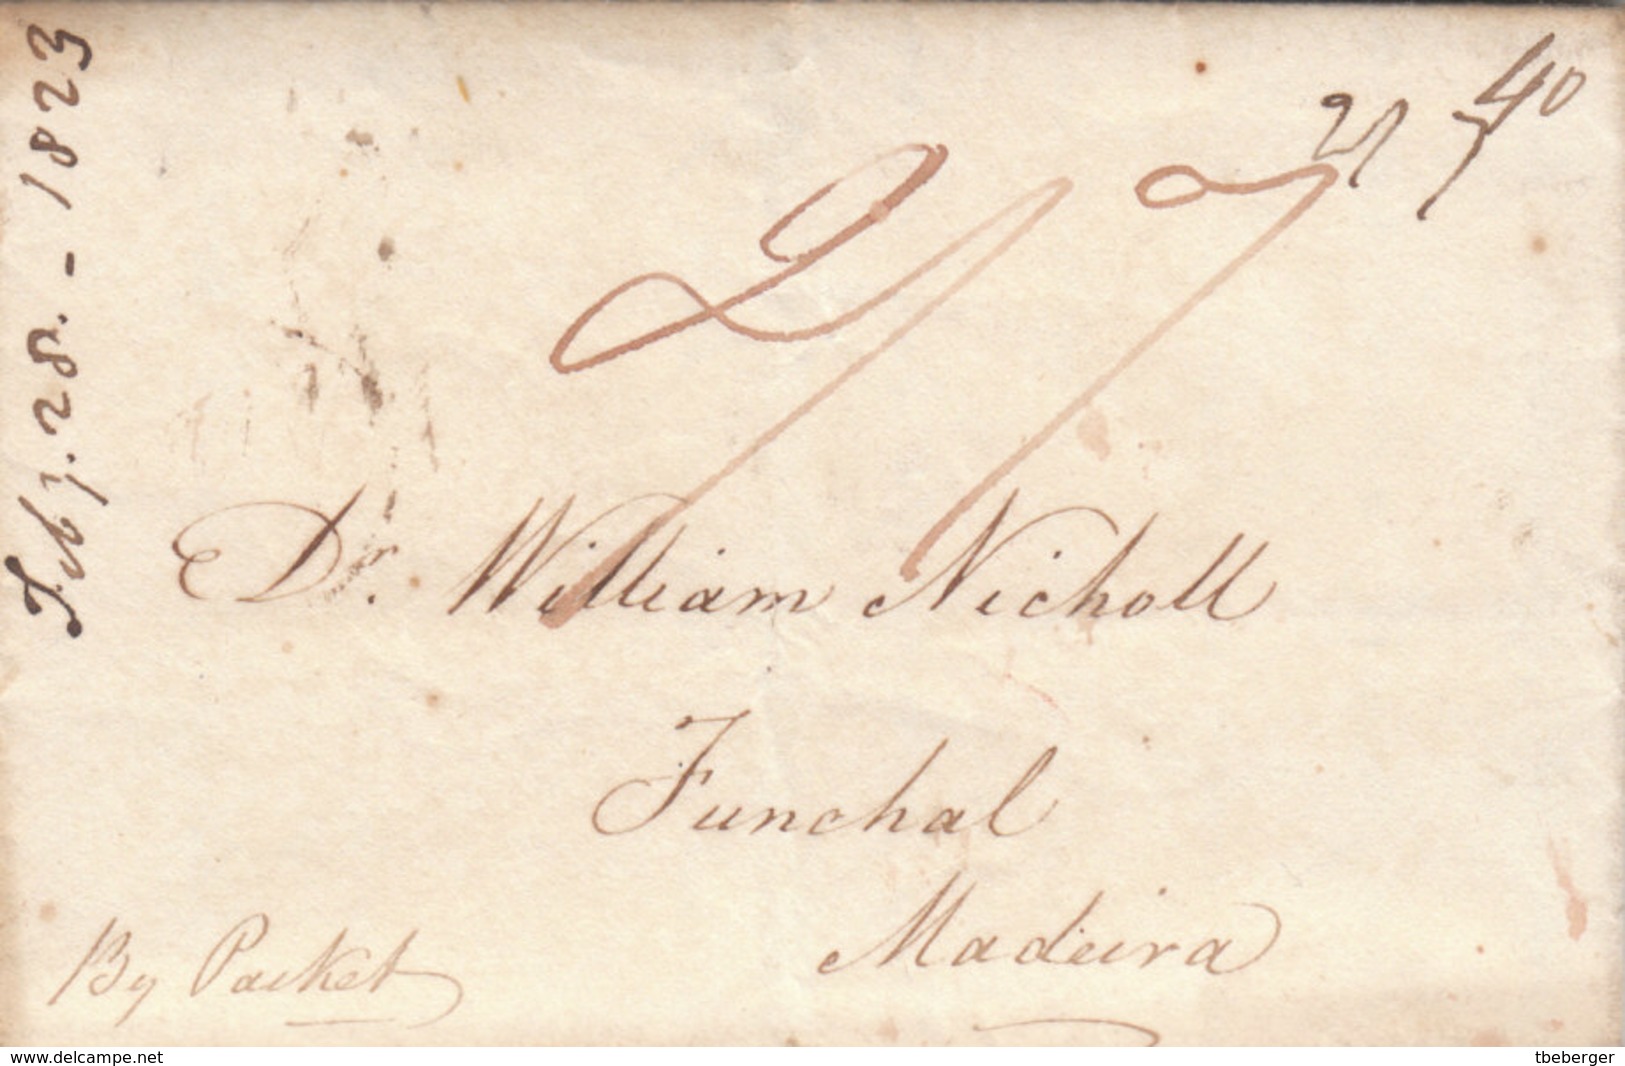 Feby. 28. - 1823
2/7
40
Dr. William Nicholl
Funchal
Madeira
By Packet
www.delcampe.net
tbeberger